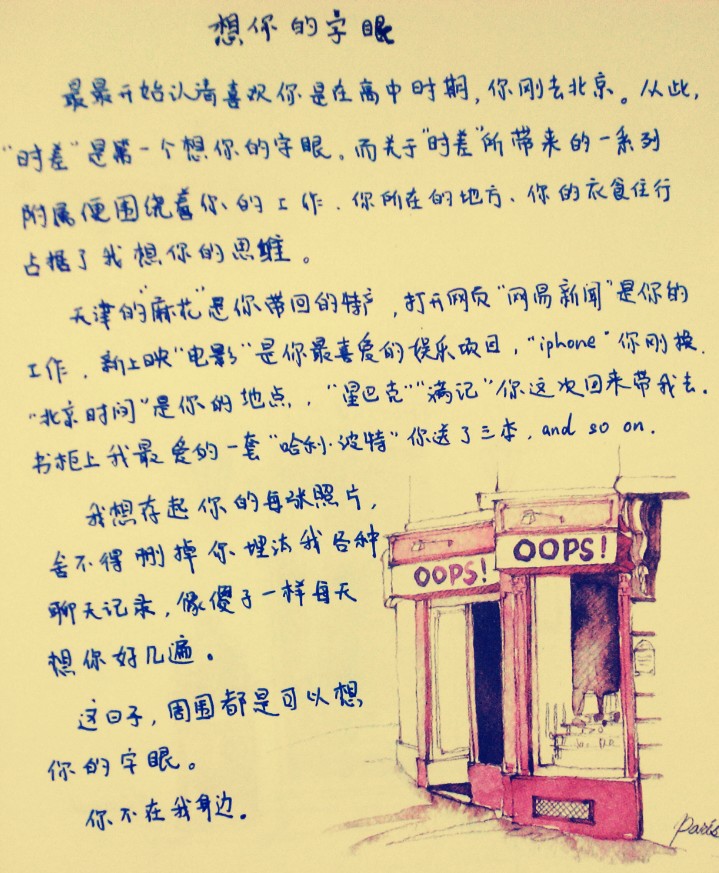 想你的字眼
最最开始认清喜欢你是在高中时期，你刚去北京。从此，
“时差”是第一个想你的字眼。而关于“时差”所带来的一系列
附属便围绕着你的工作、你所在的地方、你的衣食住行
占据了我想你的思维。
天津的“麻花”是你带回的特产，打开网页“网易新闻”是你的
工作，新上映“电影”是你最喜爱的娱乐项目，“iphone”你刚换.
“北京时间”是你的地点，“星巴克”“满记”你这次回来带我去.
书柜上我最爱的一套“哈利·波特”你送了三本，and so on.
我想存起你的每张照片，
舍不得删掉你埋汰我各种
聊天记录，像傻子一样每天
想你好几遍。
这日子，周围都是可以想
你的字眼。
你不在我身边。
OOPS!
OOPS!
Paris